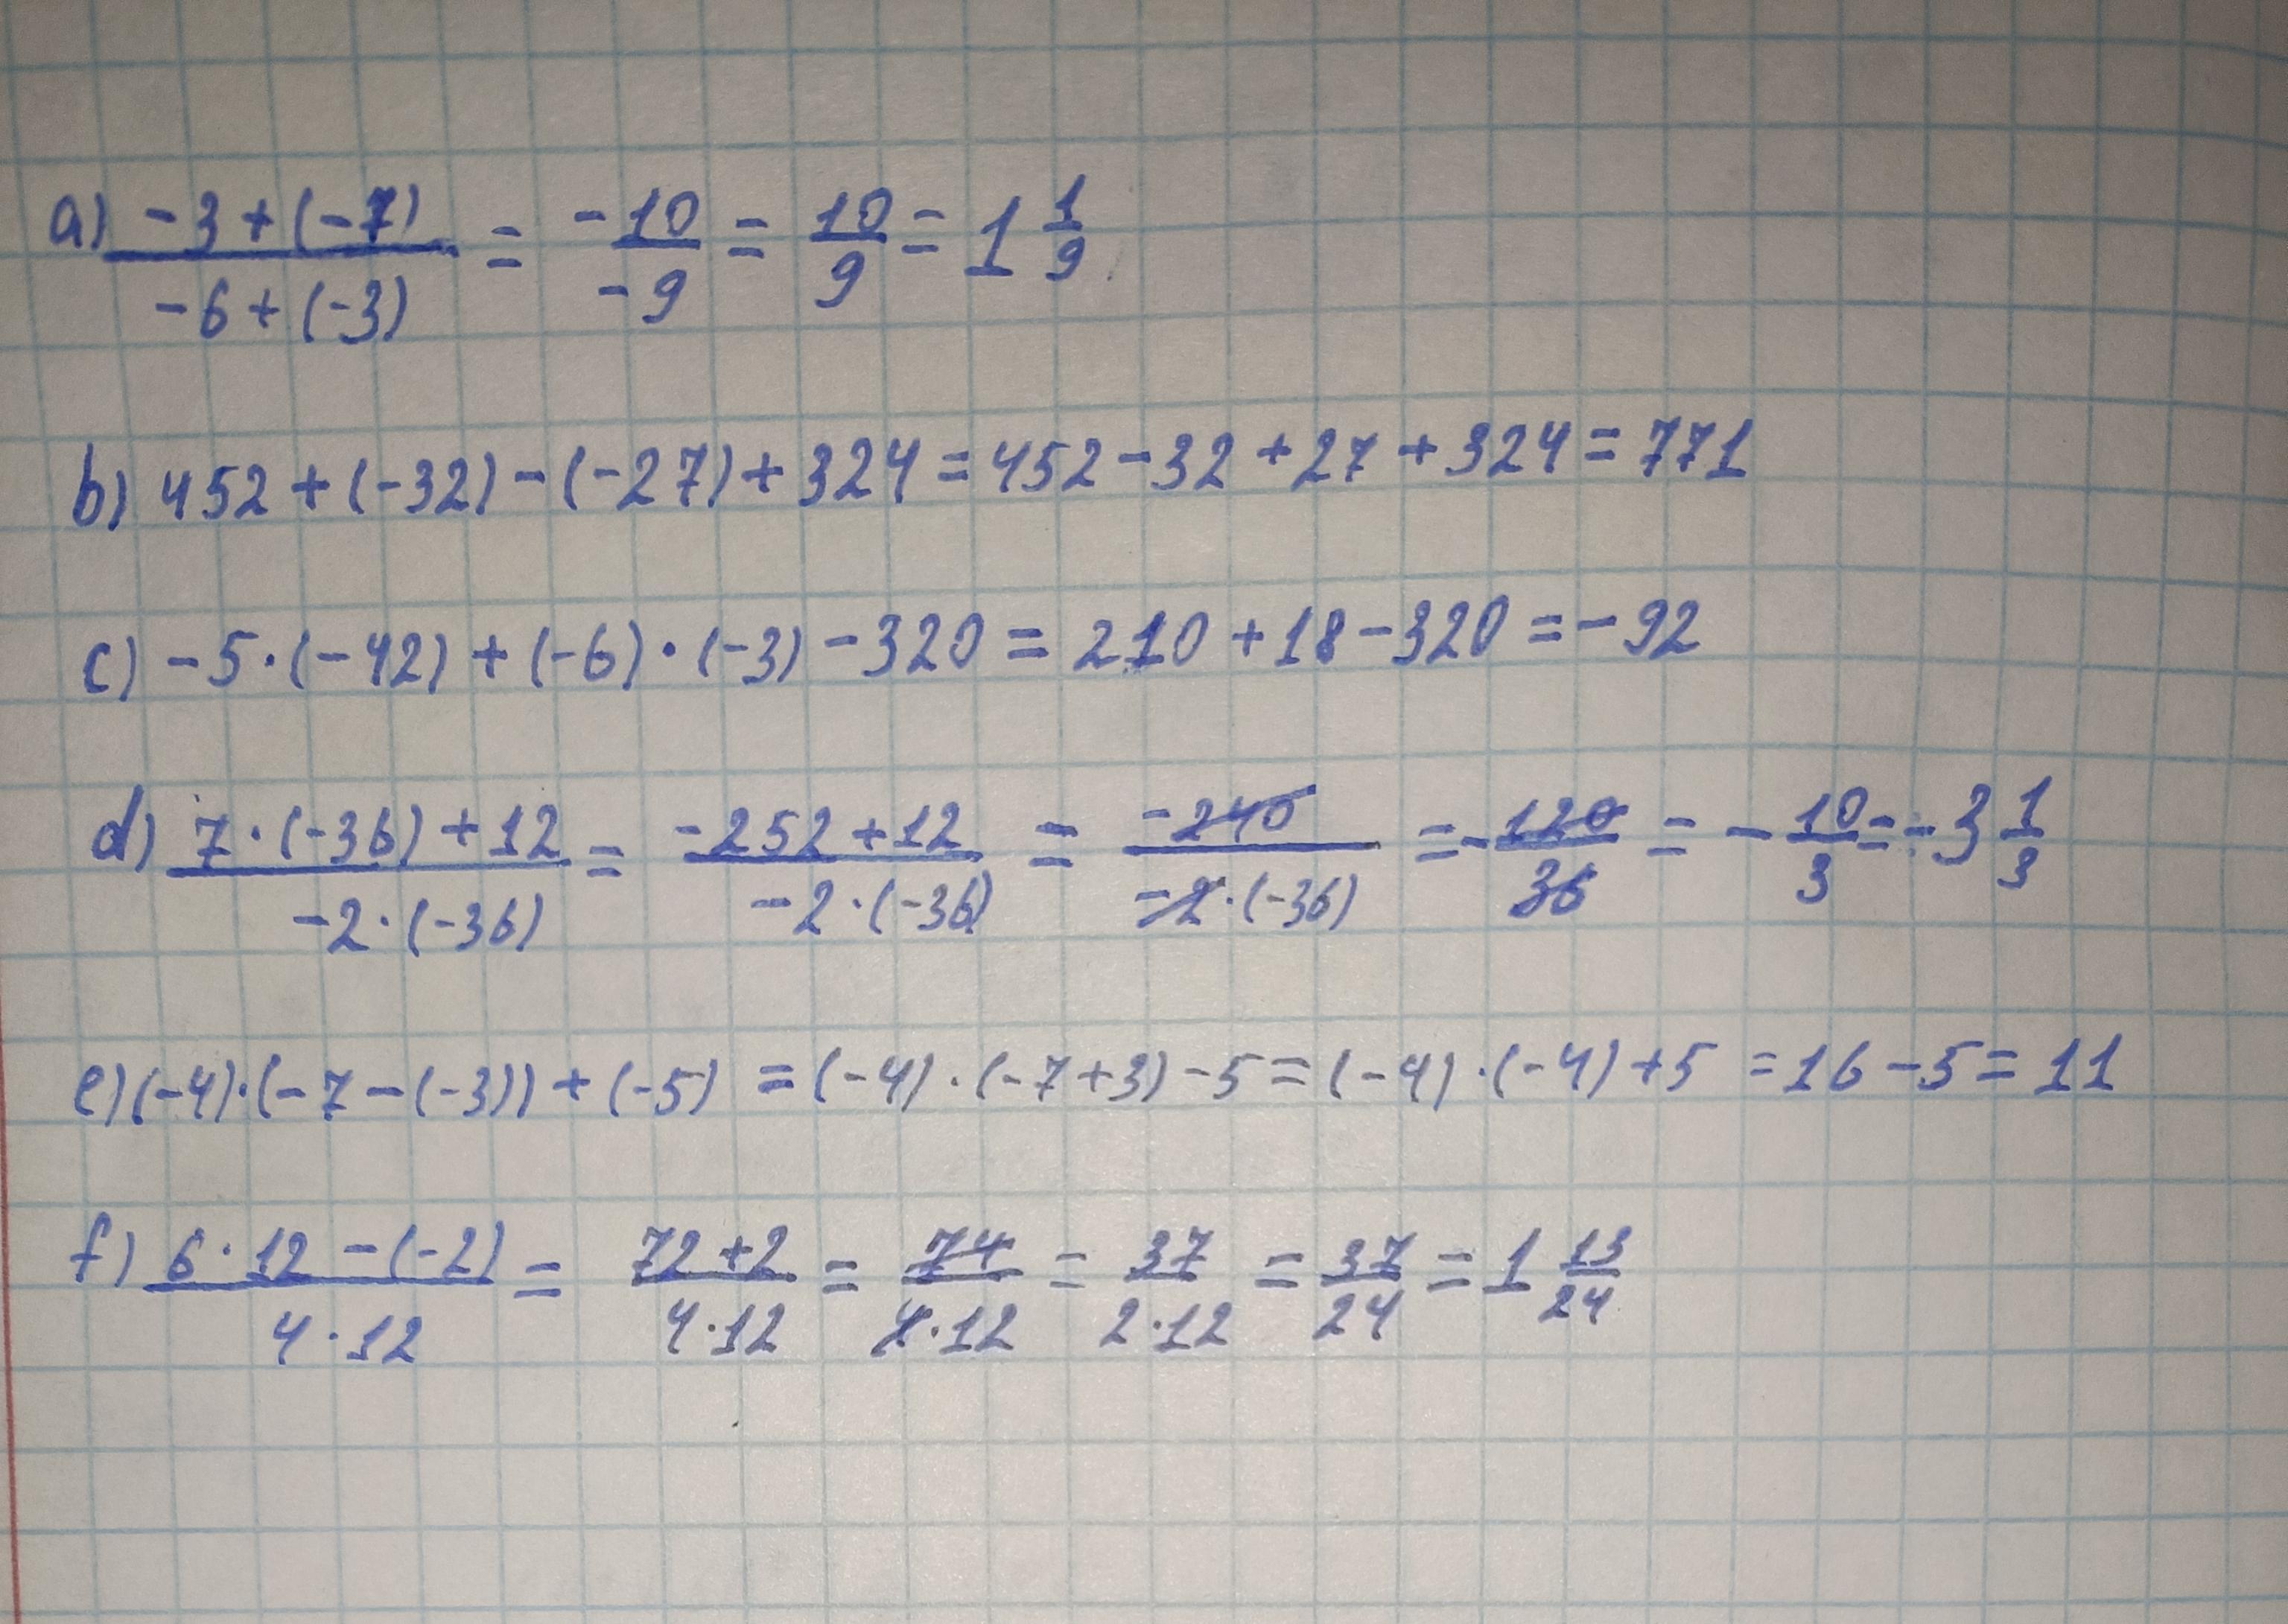 a) (-3+(-7))/(-6+(-3)) = (-10)/(-9) = 10/9 = 1 1/9
b) 452+(-32)-(-27)+324=452-32+27+324=771
c) -5·(-42)+(-6)·(-3)-320=210+18-320=-92
d) (7·(-36)+12)/(-2·(-36)) = (-252+12)/(-2·(-36)) = (-240)/(-2·(-36)) = -120/36 = -10/3 = -3 1/3
e) (-4)·(-7-(-3))+(-5) =(-4)·(-7+3)-5=(-4)·(-4)+5 =16-5=11
f) (6·12-(-2))/(4·12) = (72+2)/(4·12) = 74/(4·12) = 37/(2·12) = 37/24 = 1 13/24